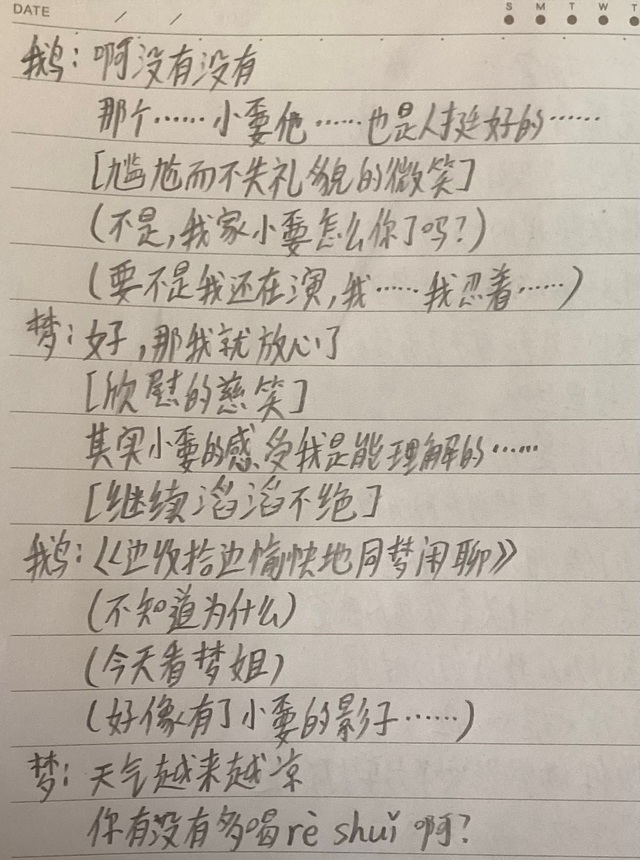 DATE / / S M T W T
鹅：啊没有没有
那个……小耍他……也是人挺好的……
[尴尬而不失礼貌的微笑]
(不是,我家小耍怎么你了吗?)
(要不是我还在演,我……我忍着……)
梦：好,那我就放心了
[欣慰的慈笑]
其实小耍的感受我是能理解的……
[继续滔滔不绝]
鹅：《边收拾边愉快地同梦闲聊》
(不知道为什么)
(今天看梦姐)
(好像有了小耍的影子……)
梦：天气越来越凉
你有没有多喝rè shuǐ 啊?